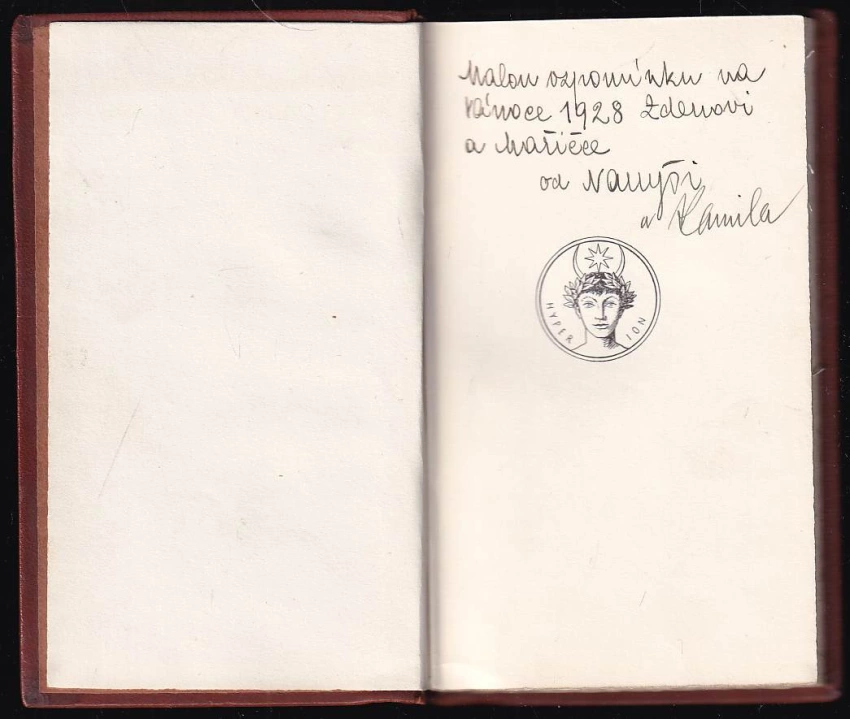 Malou vzpomínku na
vánoce 1928 Zdenovi
a Mařičce
od Nanyši
a Kamila
HYPERION